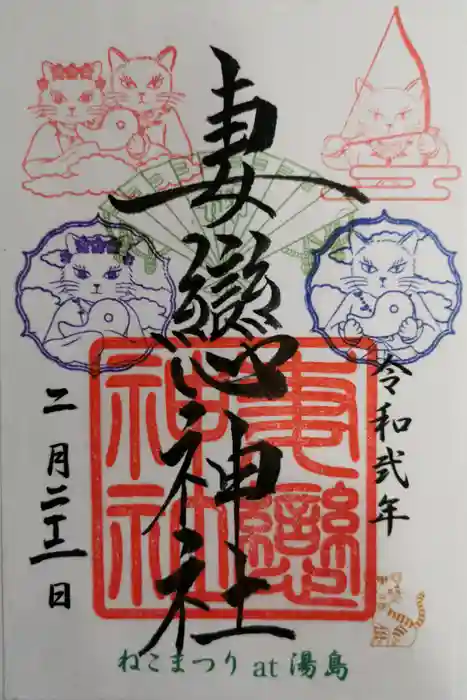 令和弐年
妻戀神社
妻戀
神社
二月二十一日
ねこまつり at 湯島